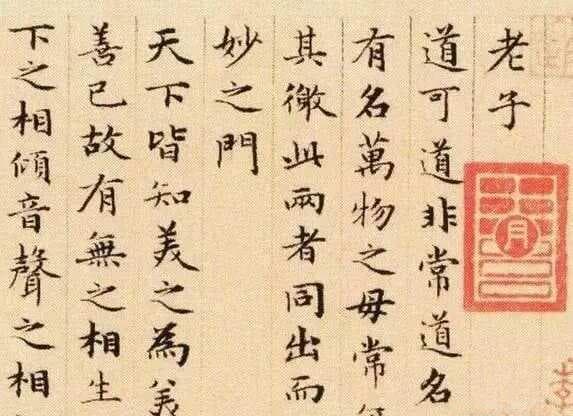 老子
道可道非常道名
有名萬物之母常
其徼此兩者同出而
妙之門
天下皆知美之為美
善已故有無之相生
下之相傾音聲之相
月